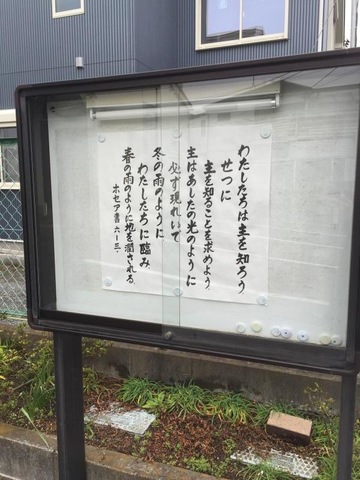 わたしたちは主を知ろう
せつに
主を知ることを求めよう
主はあしたの光のように
必ず現れいで
冬の雨のように
わたしたちに臨み、
春の雨のように地を潤される。
ホセア書 六-三.